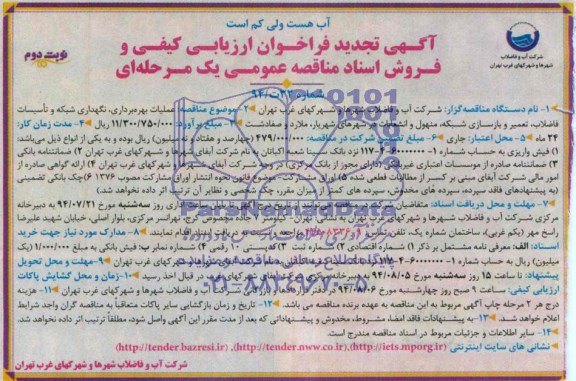 آب هست ولی کم است
آگهی تجدید فراخوان ارزیابی کیفی و
فروش اسناد مناقصه عمومی یک مرحله‌ای
نوبت دوم
شرکت آب و فاضلاب
شهرها و شهرکهای غرب تهران
۱- نام دستگاه مناقصه‌گزار: شرکت آب و فاضلاب شهرها و شهرکهای غرب تهران ۲- موضوع مناقصه: عملیات بهره‌برداری، نگهداری شبکه و تأسیسات
فاضلاب، تعمیر و بازسازی شبکه، منهول و انشعابات در شهرهای شهریار، ملارد و صفادشت ۳- مبلغ برآورد: ۱۱/۳۰۰/۷۵۰/۰۰۰ ریال ۴- مدت زمان کار:
۲۴ ماه ۵- محل اعتبار: جاری ۶- مبلغ تضمین شرکت در مناقصه: ۴۷۹/۰۰۰/۰۰۰ (چهارصد و هفتاد و نه میلیون) ریال بوده و به یکی از انواع ذیل می‌باشد:
۱) فیش واریزی به حساب شماره نزد بانک شعبه آکباتان به نام شرکت آبفای شهرها و شهرکهای غرب تهران ۲) ضمانتنامه بانکی
۳) ضمانتنامه صادره از موسسات اعتباری غیربانکی (دارای مجوز از بانک مرکزی) شرکت آبفای شهرها و شهرکهای غرب تهران ۴) ارائه گواهی صادره از
امور مالی شرکت آبفای مبنی بر کسر از مطالبات قطعی شده ۵) اوراق مشارکت- موضوع قانون نحوه انتشار اوراق مشارکت مصوب ۱۳۷۶ ۶) چک تضمینی
(به پیشنهادهای فاقد سپرده، سپرده های مخدوش، سپرده های کمتر از میزان مقرر، چک شخصی و نظایر آن ترتیب اثر داده نخواهد شد.)
۷- مهلت و محل دریافت اسناد: متقاضیان روز سه‌شنبه مورخ ۹۴/۰۷/۲۱ به دبیرخانه
مرکزی شرکت آب و فاضلاب شهرها و شهرکهای غرب تهران کرج، نهرانسر مرکزی، بلوار اصلی، خیابان شهید علیرضا
راسخ مهر (یکم غربی)، ساختمان شماره یک، تلفن اقدام نمایند. ۸- مدارک مورد نیاز جهت خرید
اسناد: الف: معرفی نامه مشتمل بر ذکر ۱) شماره اقتصادی ۲) شماره ثبت ۳) کدپستی ۴) تلفن ۵) شماره نمابر ب: فیش بانکی به مبلغ ۱/۰۰۰/۰۰۰ (یک
میلیون) ریال به حساب شماره شهرکهای غرب تهران ۹- مهلت و محل تحویل
پیشنهاد: تا ساعت ۱۵ روز سه‌شنبه مورخ ۹۴/۰۸/۰۵ به دبیرخانه مرکزی شهرکهای غرب تهران در قبال اخذ رسید ۱۰- زمان و محل گشایش پاکات
ارزیابی کیفی: ساعت ۹ صبح روز چهارشنبه مورخ ۹۴/۰۸/۰۶ شرکت آب و فاضلاب شهرها و شهرکهای غرب تهران ۱۱- هزینه
درج هر ۲ مرحله چاپ آگهی مربوط به این مناقصه به عهده برنده مناقصه می باشد. ۱۲- تاریخ و زمان بازگشایی سایر پاکات متعاقباً به مناقصه گران واجد شرایط
اعلام خواهد شد. ۱۳- به پیشنهادات فاقد امضاء، مشروط، مخدوش و پیشنهاداتی که بعد از مدت مقرر این آگهی واصل شود، مطلقاً ترتیب اثر داده نخواهد شد.
۱۴- سایر اطلاعات و جزئیات مربوط در اسناد مناقصه مندرج است.
نشانی های سایت اینترنتی (http://iets.mporg.ir), (http://tender.nww.co.ir), (http://tender.bazresi.ir)
شرکت آب و فاضلاب شهرها و شهرکهای غرب تهران
ParsNamadData
۰۲۱-۸۸۳۴۹۶۷۰-۵